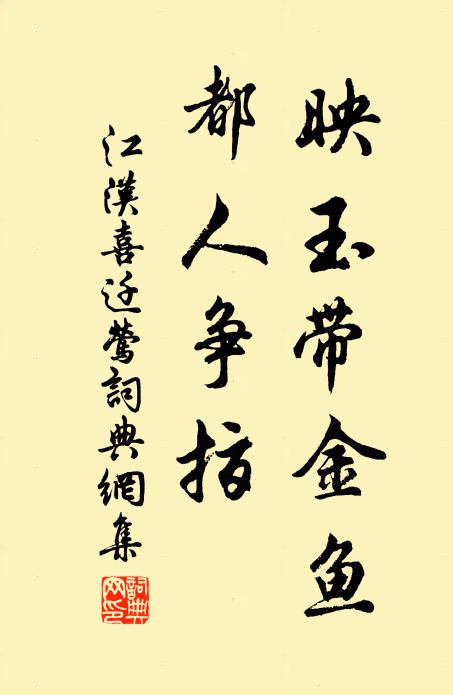 映玉带金鱼
都人争指
江漢喜迁鶯詞典網集
詞典网印